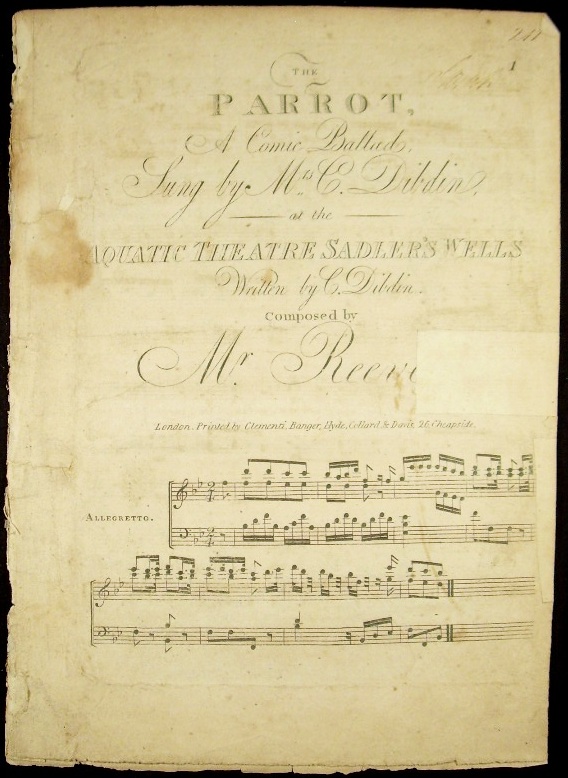 1
THE
PARROT,
A Comic Ballad,
Sung by Mrs. C. Dibdin,
at the
AQUATIC THEATRE SADLER'S WELLS
Written by C. Dibdin.
Composed by
Mr. Reeve
London. Printed by Clementi, Banger, Hyde, Collard & Davis, 26, Cheapside.
ALLEGRETTO.